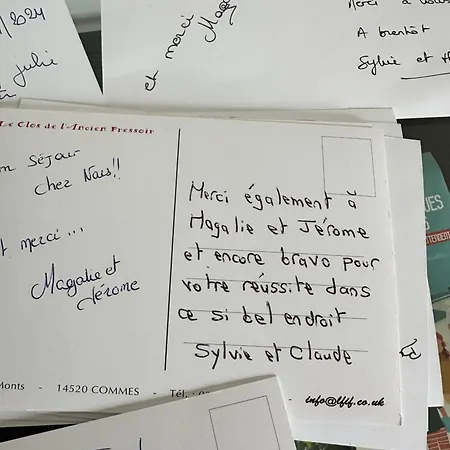 /2024
julie
et merci
Merci à vous
A bientôt
Sylvie et
Le Clos de l'Ancien Pressoir
on Séjour
chez Nous!!
t merci...
Magalie et
Jérome
Merci également à
Magalie et Jérome
et encore bravo pour
votre réussite dans
ce si bel endroit
Sylvie et Claude
Monts - 14520 COMMES - Tél. : 0
info@lfif.co.uk